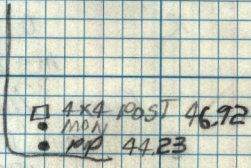 4x4 POST 46.92
MON
PP 44.23